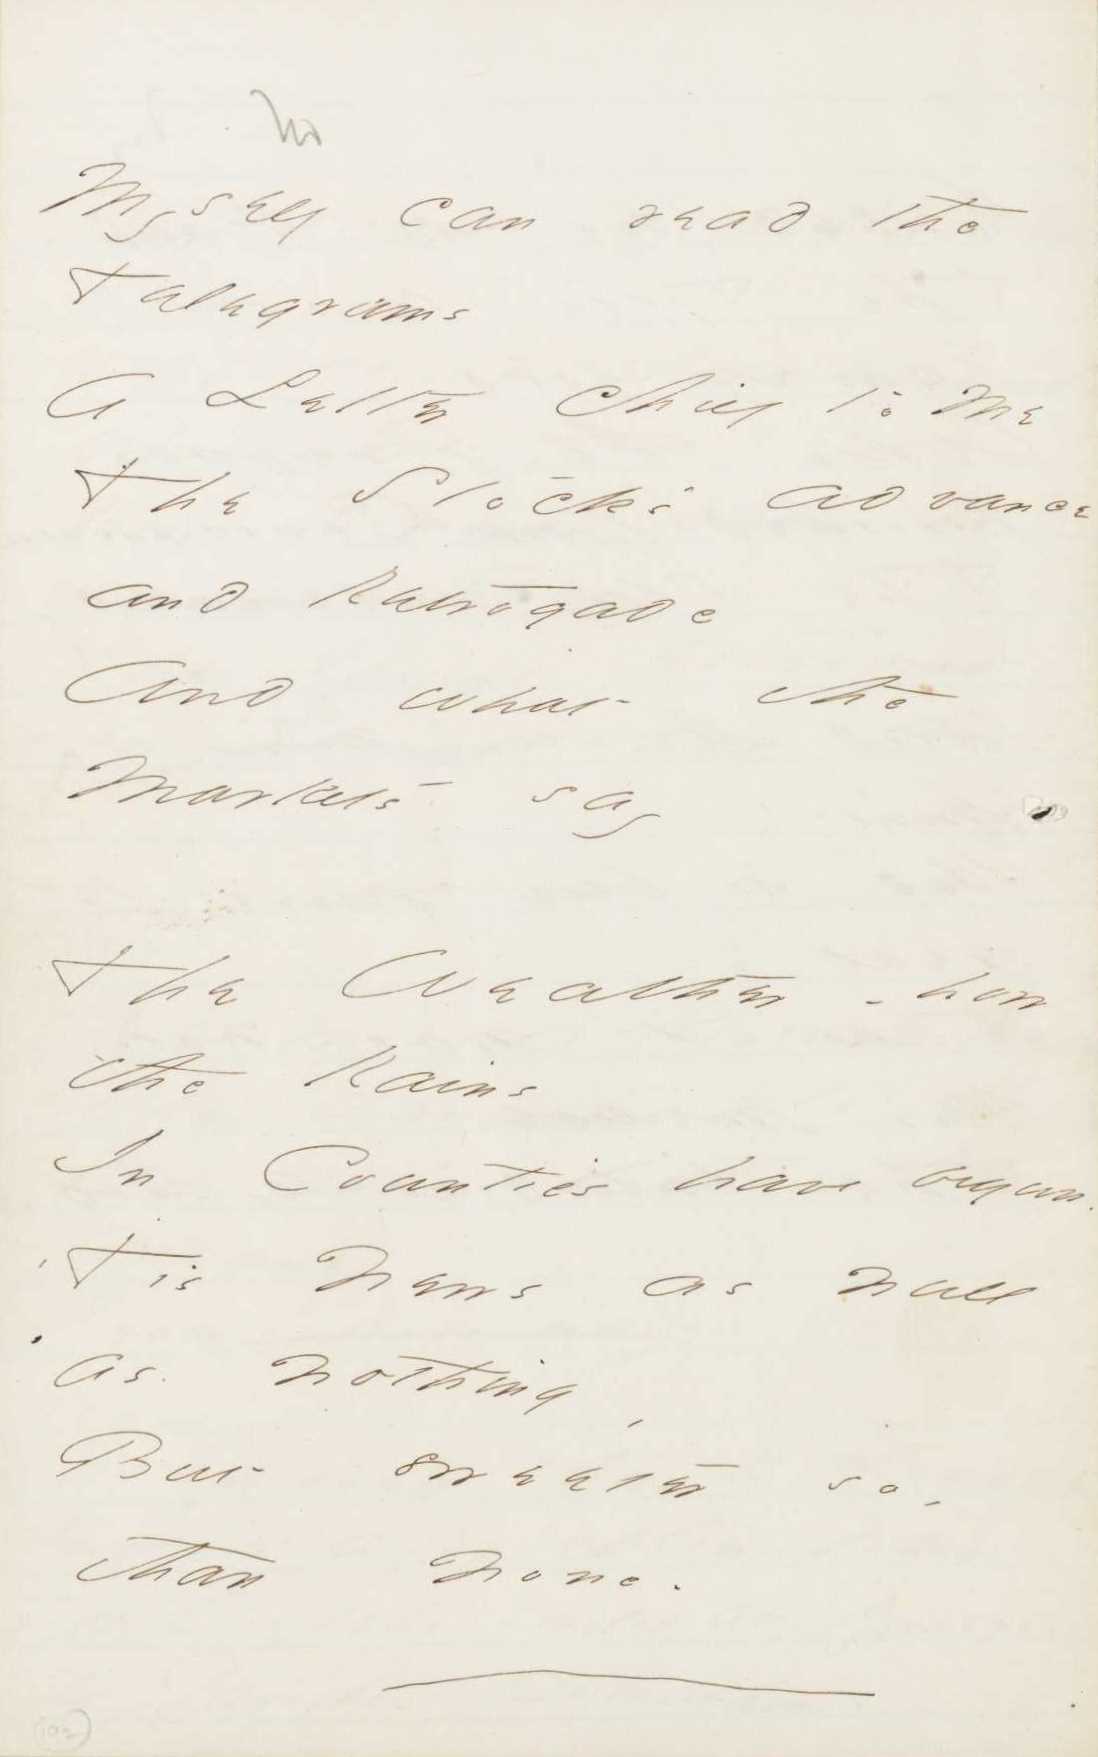 Myself can read the
Telegrams
A Letter chief to me
The Stock's advance
and Retrogade
And what the
Markets say
The Weather - how
the Rains
In Counties have begun.
'Tis News as null
as nothing,
But sweeter so,
than none.